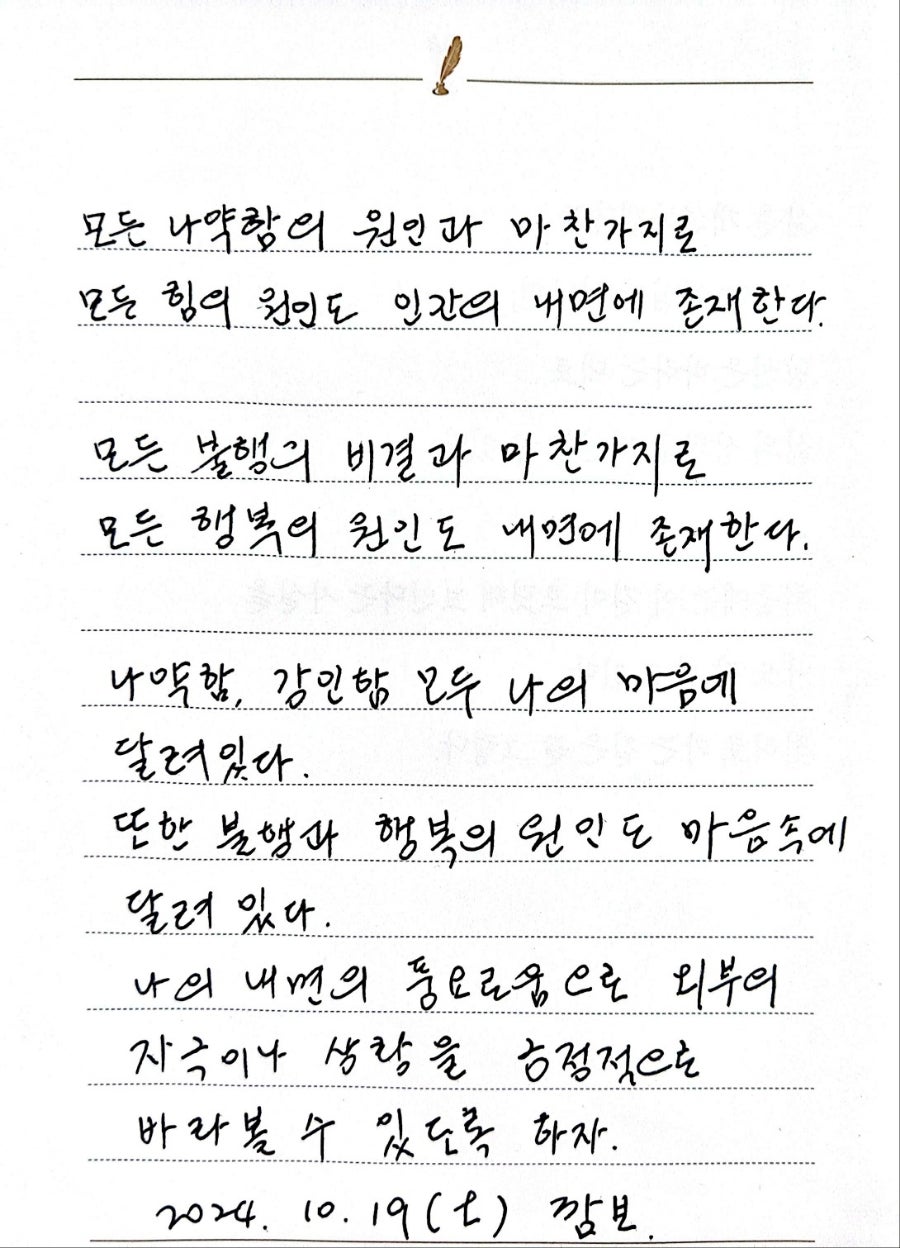 모든 나약함의 원인과 마찬가지로
모든 힘의 원인도 인간의 내면에 존재한다.
모든 불행의 비결과 마찬가지로
모든 행복의 원인도 내면에 존재한다.
나약함, 강인함 모두 나의 마음에
달려있다.
또한 불행과 행복의 원인도 마음속에
달려 있다.
나의 내면의 풍요로움으로 외부의
자극이나 상황을 긍정적으로
바라볼 수 있도록 하자.
2024. 10. 19(토) 깜보.